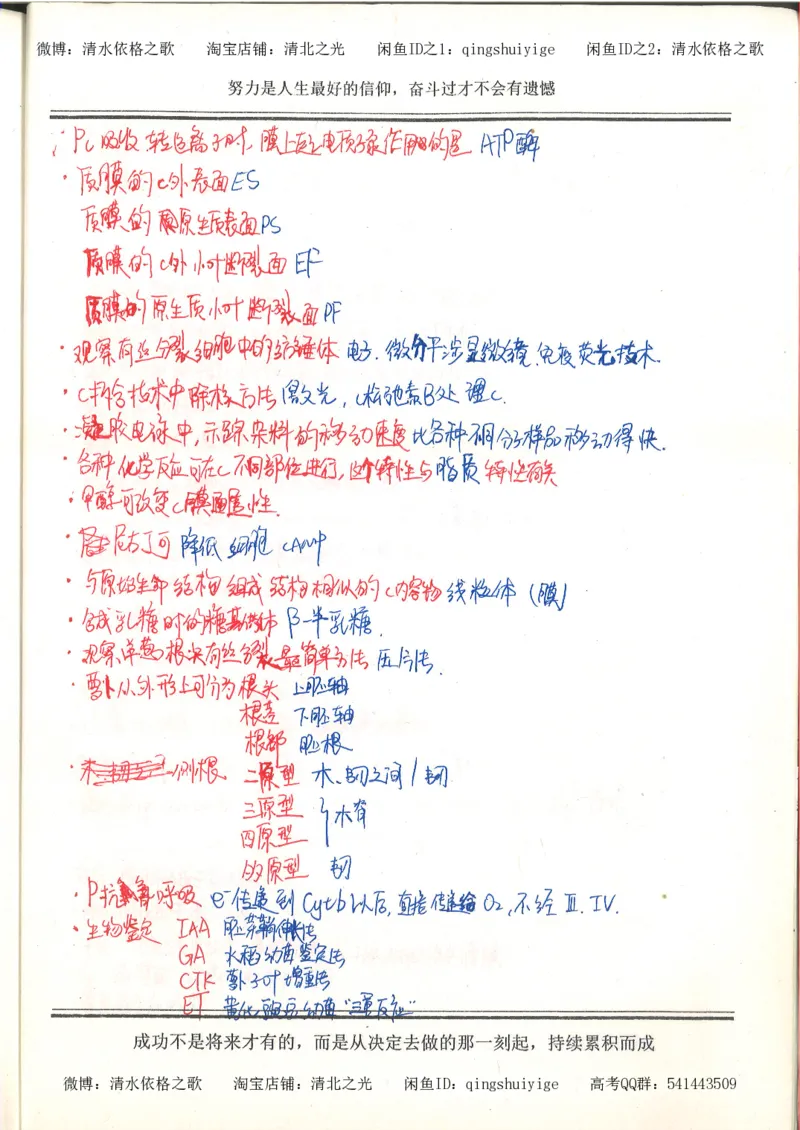 微博：清水依格之歌 淘宝店铺：清北之光 闲鱼ID之1：qingshuiyige 闲鱼ID之2：清水依格之歌
努力是人生最好的信仰，奋斗过才不会有遗憾
· Pc吸收转运离子时，膜上起电质子泵作用的是 ATP酶
· 质膜的c外表面ES
质膜的原生质表面PS
质膜的c外小叶断裂面 EF
质膜的原生质小叶断裂面 PF
· 观察有丝分裂细胞中的纺锤体 电子．微分干涉显微镜．免疫荧光技术．
· c杂合技术中除核方法 激光，c松弛素B处理c．
· 凝胶电泳中，示踪染料的移动速度比各种分子样品移动得快．
· 各种化学反应可在c不同部位进行，这个特性与脂质特性有关
· 甲醇可改变c膜通透性．
· 尼古丁可 降低细胞 cAMP
· 与原始生命结构组成结构相似的c内容物 线粒体（膜）
· 合成乳糖时的糖基供体 β-半乳糖．
· 观察洋葱根尖有丝分裂最简单方法 压片法．
· 萝卜从外形上可分为根头 上胚轴
根茎 下胚轴
根部 胚根
· 侧根 二原型 木、韧之间／韧
三原型
木脊
四原型
多原型 韧
· P抗氰呼吸 e⁻传递到Cytb以后，直接传递给O₂，不经 III．IV．
· 生物鉴定 IAA 胚芽鞘伸长法
GA 水稻幼苗鉴定法
CTK 萝卜子叶增重法
ET 黄化豌豆幼苗“三重反应”
成功不是将来才有的，而是从决定去做的那一刻起，持续累积而成
微博：清水依格之歌 淘宝店铺：清北之光 闲鱼ID：qingshuiyige 高考QQ群：541443509